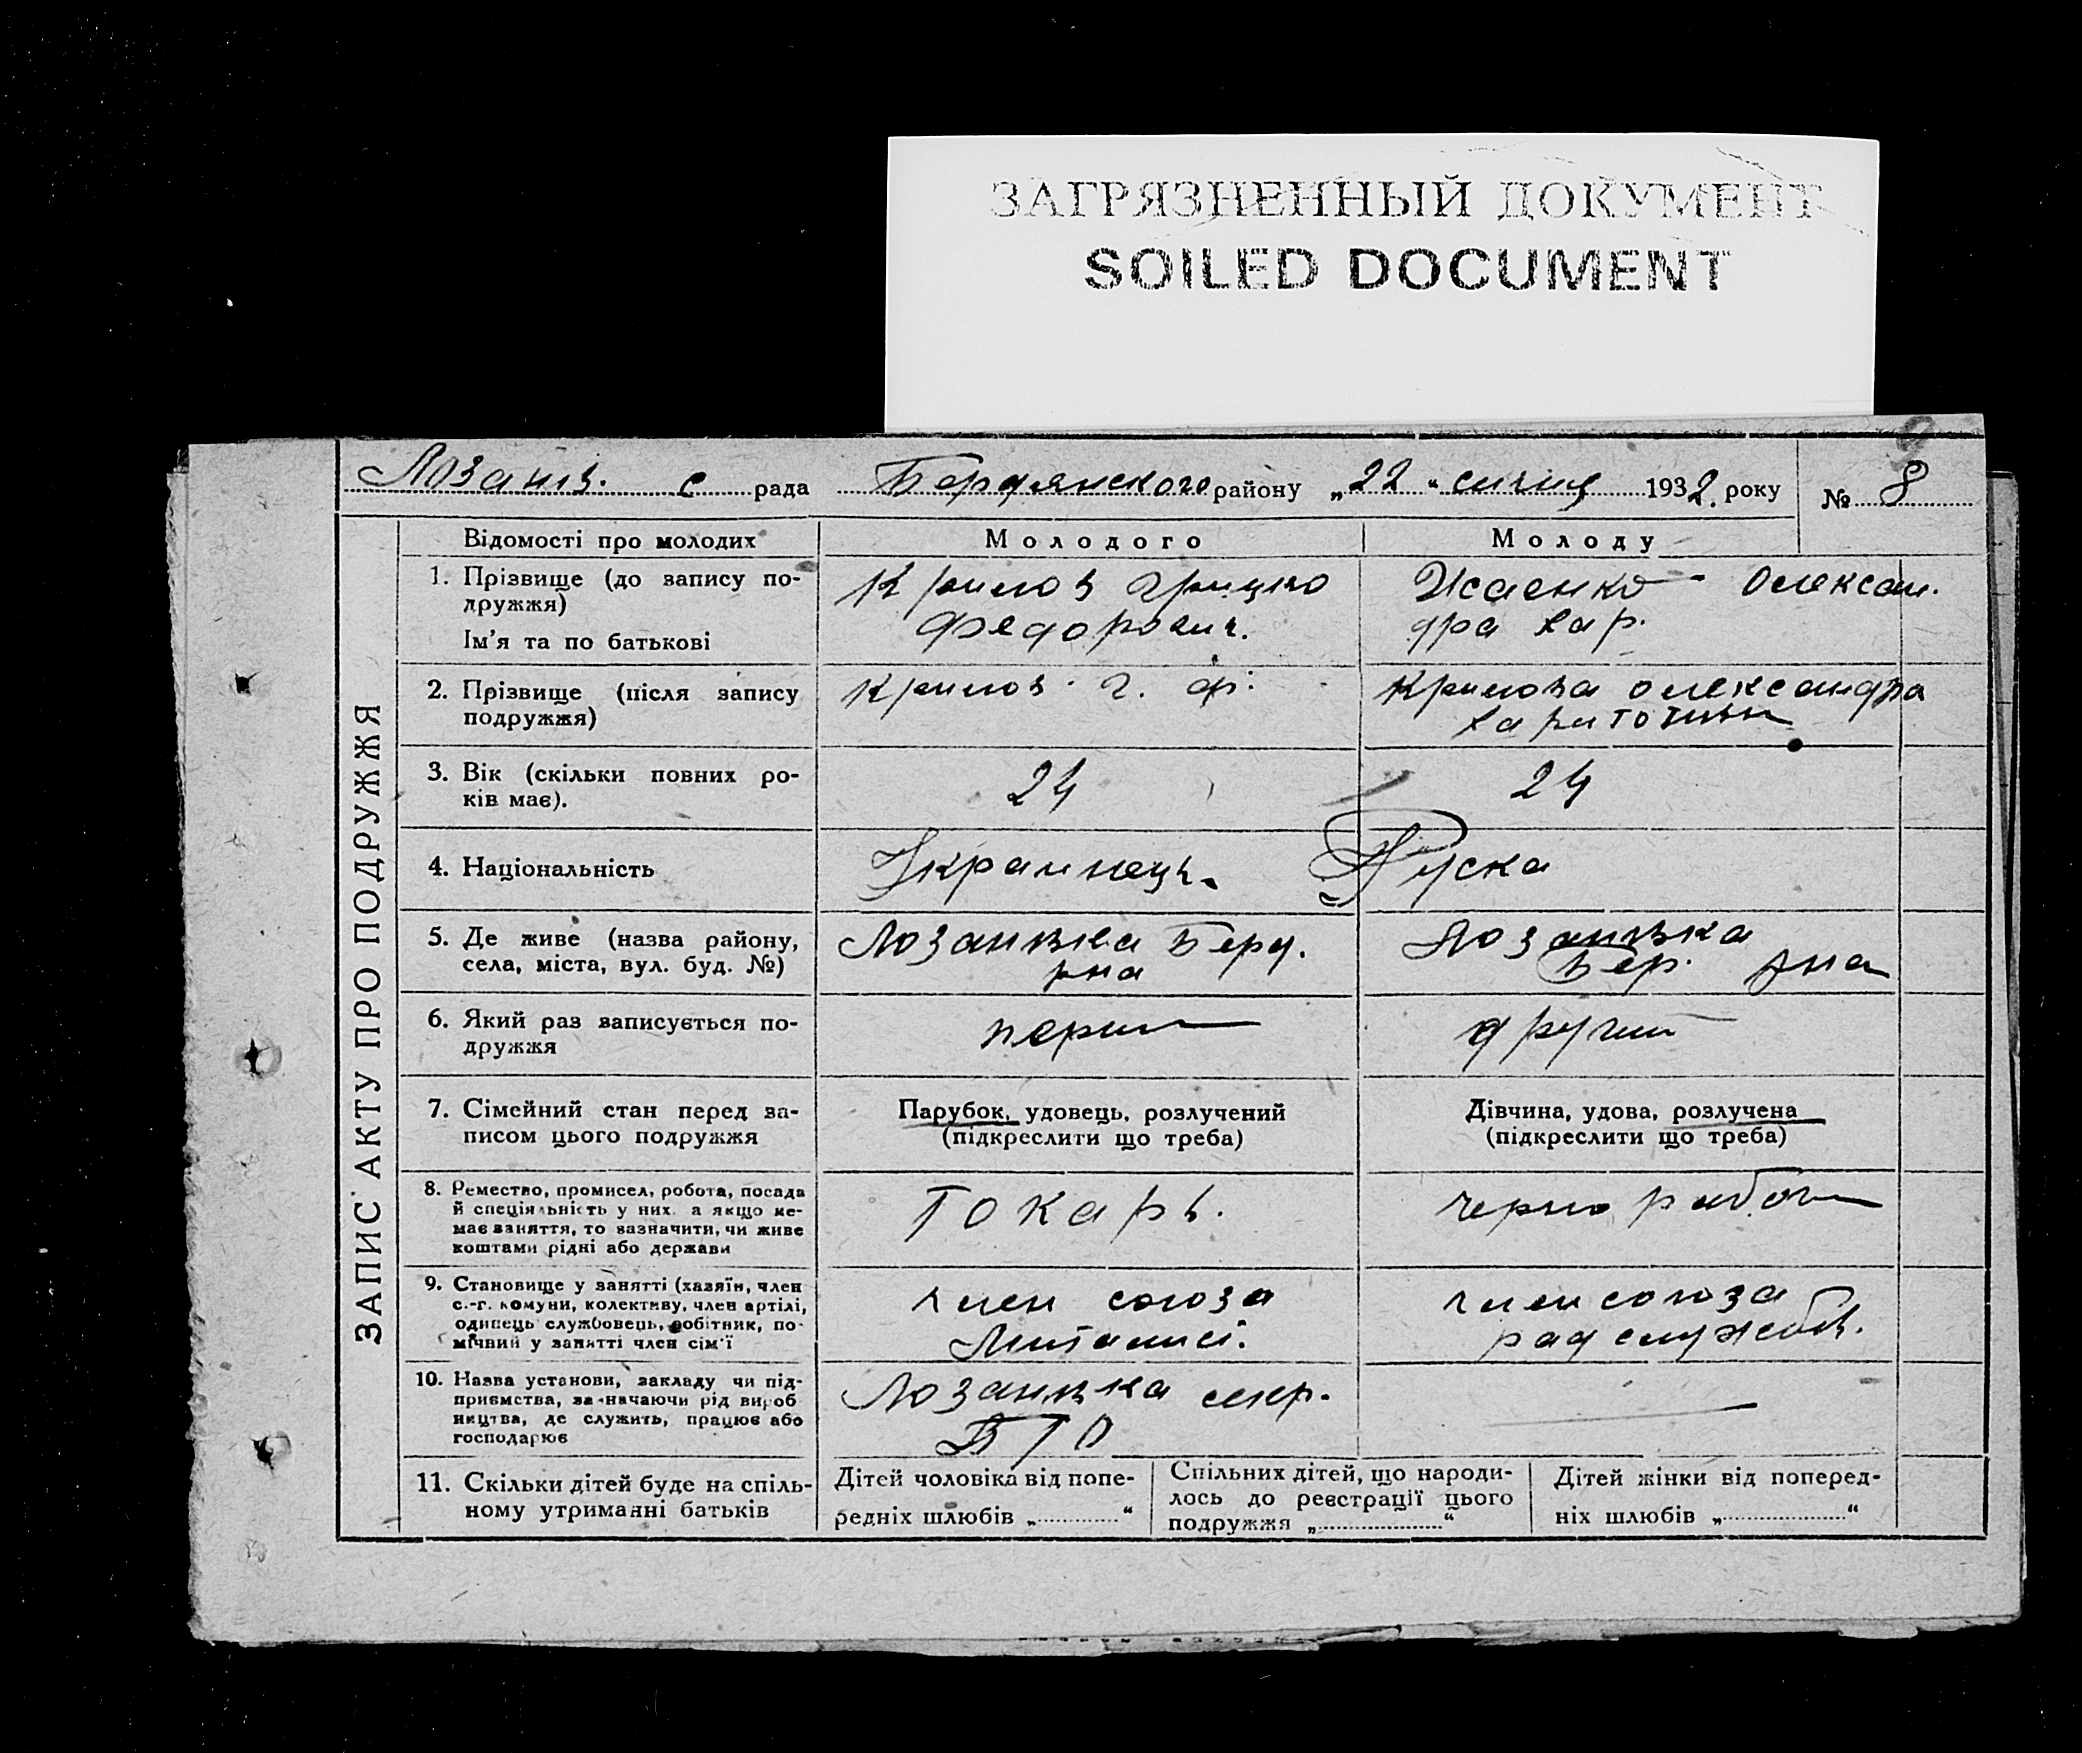 ЗАГРЯЗНЕННЫЙ ДОКУМЕНТ
SOILED DOCUMENT
Лозанів. с рада Бердянського району „22“ січня 1932. року № 8
ЗАПИС АКТУ ПРО ПОДРУЖЖЯ
Відомості про молодих
Молодого
Молоду
1. Прізвище (до запису по-
дружжя)
Ім'я та по батькові
Крилов Грицко
Федорович.
Олексан.
дра Хар.
2. Прізвище (після запису
подружжя)
Крилов Г. Ф.
Крилова Олександра
Харитовна
3. Вік (скільки повних ро-
ків має).
24
24
4. Національність
Українець.
Руска
5. Де живе (назва району,
села, міста, вул. буд. №)
Лозанівка Берд.
рна
Лозанівка
Бер. рна
6. Який раз записується по-
дружжя
перший
другий
7. Сімейний стан перед за-
писом цього подружжя
Парубок, удовець, розлучений
(підкреслити що треба)
Дівчина, удова, розлучена
(підкреслити що треба)
8. Ремество, промисел, робота, посада
й спеціяльність у них, а якщо не-
має заняття, то зазначити, чи живе
коштами рідні або держави
Токарь.
черно рабоч
9. Становище у занятті (хазяїн, член
с.-г. комуни, колективу, член артілі,
одинець службовець, робітник, по-
мічний у занятті член сім'ї
член союза
Металіст.
член союза
рад службов.
10. Назва установи, закладу чи під-
приємства, зазначаючи рід вироб
ництва, де служить, працює або
господарює
Лозанівка
11. Скільки дітей буде на спіль-
ному утриманні батьків
Дітей чоловіка від попе-
редніх шлюбів „ “
Спільних дітей, що народи-
лось до реєстрації цього
подружжя „ “
Дітей жінки від поперед-
ніх шлюбів „ “